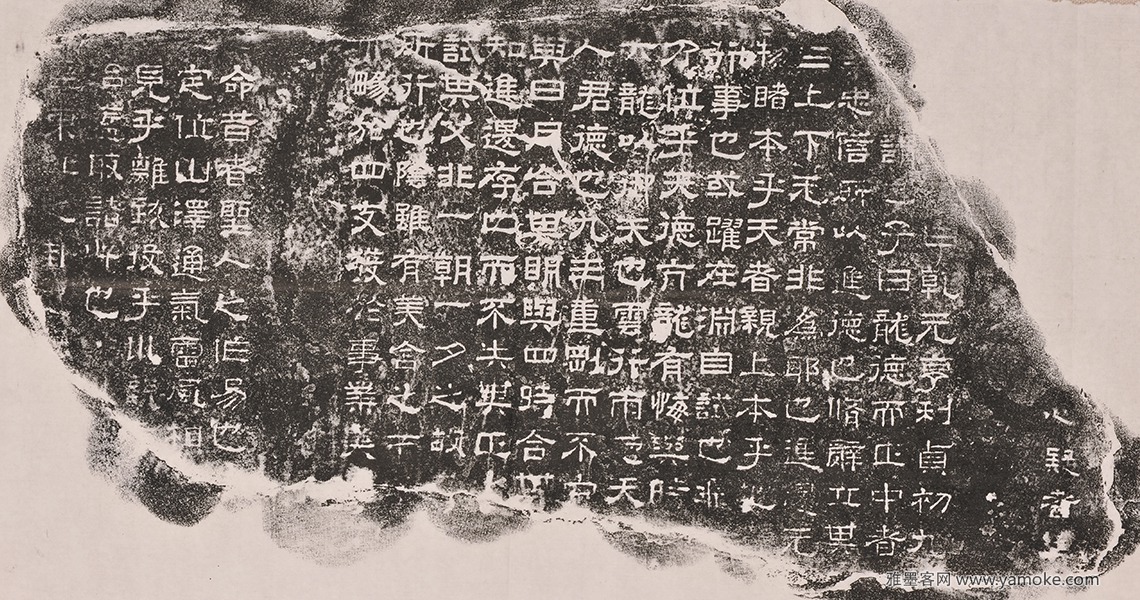 心疑者
乾元亨利貞初九
子曰龍德而正中者
忠信所以進德也脩辭立其
三上下无常非為邪也進退无
物睹本乎天者親上本乎地
行事也或躍在淵自試也飛
乃位乎天德亢龍有悔與時
六龍以御天也雲行雨施天
人君德也九三重剛而不中
與日月合其明與四時合其
知進退存亡而不失其正
試其父非一朝一夕之故
所行也陰雖有美含之
暢於四支發於事業美
命昔者聖人之作易也
定位山澤通氣雷風相
見乎離致役乎川說
故也
之卦
雅墨客网 www.yamoke.com